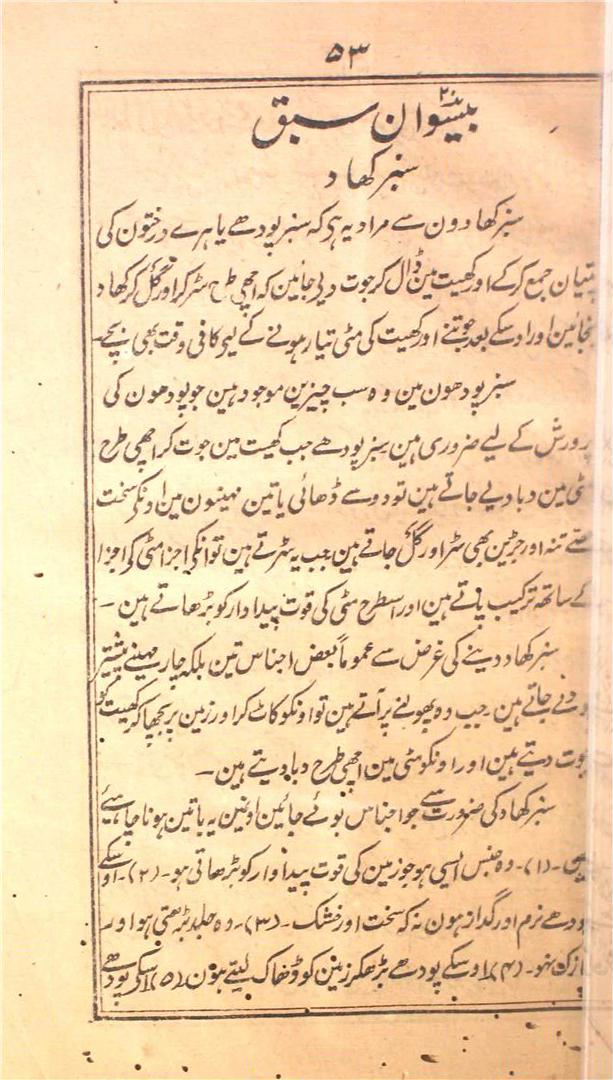 ۵۳
بیسوان سبق
۲۰
سبز کھاد
سبز کھادون سے مراد یہ ہی کہ سبز پودھے یا ہرے درختون کی
پتیان جمع کرکے اور کھیت مین ڈال کر جوت دیجائین کہ اچھی طرح سڑ کر اور گھل کر کھاد
بنجائین اور اوسکے بعد جوتنے اور کھیت کی مٹی تیار ہونے کے لیے کافی وقت بھی بچے۔
سبز پودھون مین وہ سب چیزین موجود ہین جو پودھون کی
پرورش کے لیے ضروری ہین سبز پودھے جب کھیت مین جوت کر اچھی طرح
مٹی مین دبا دیے جاتے ہین تو دو سے ڈھائی یا تین مہینون مین اونکی سخت
تنہ اور جڑین بھی سڑ اور گل جاتے ہین جب یہ سڑتے ہین تو انکی اجزا مٹی کی اجزا
کے ساتھ ترکیب پاتے ہین اور اسطرح مٹی کی قوت پیداوار کو بڑھاتے ہین۔
سبز کھاد دینے کی غرض سے عموماً بعض اجناس تین بلکہ چار مہینے پیشتر
بو دئے جاتے ہین۔ جب وہ پھولنے پر آتے ہین تو اونکو کاٹ کر اور زمین پر بچھا کر کھیت کو
جوت دیتے ہین اور اونکو مٹی مین اچھی طرح دبا دیتے ہین۔
سبز کھاد کی ضرورت سے جو اجناس بوئے جائین اونمین یہ باتین ہونا چاہئے
(۱)۔ وہ جنس ایسی ہو جو زمین کی قوت پیداوار کو بڑھاتی ہو۔ (۲)۔ اوسکے
پودھے نرم اور گداز ہون نہ کہ سخت اور خشک۔ (۳)۔ وہ جلد بڑھتی ہو اور
نازک نہو۔ (۴) اوسکے پودھے بڑھکر زمین کو ڈھاک لیتے ہون (۵) اسکی پودھے